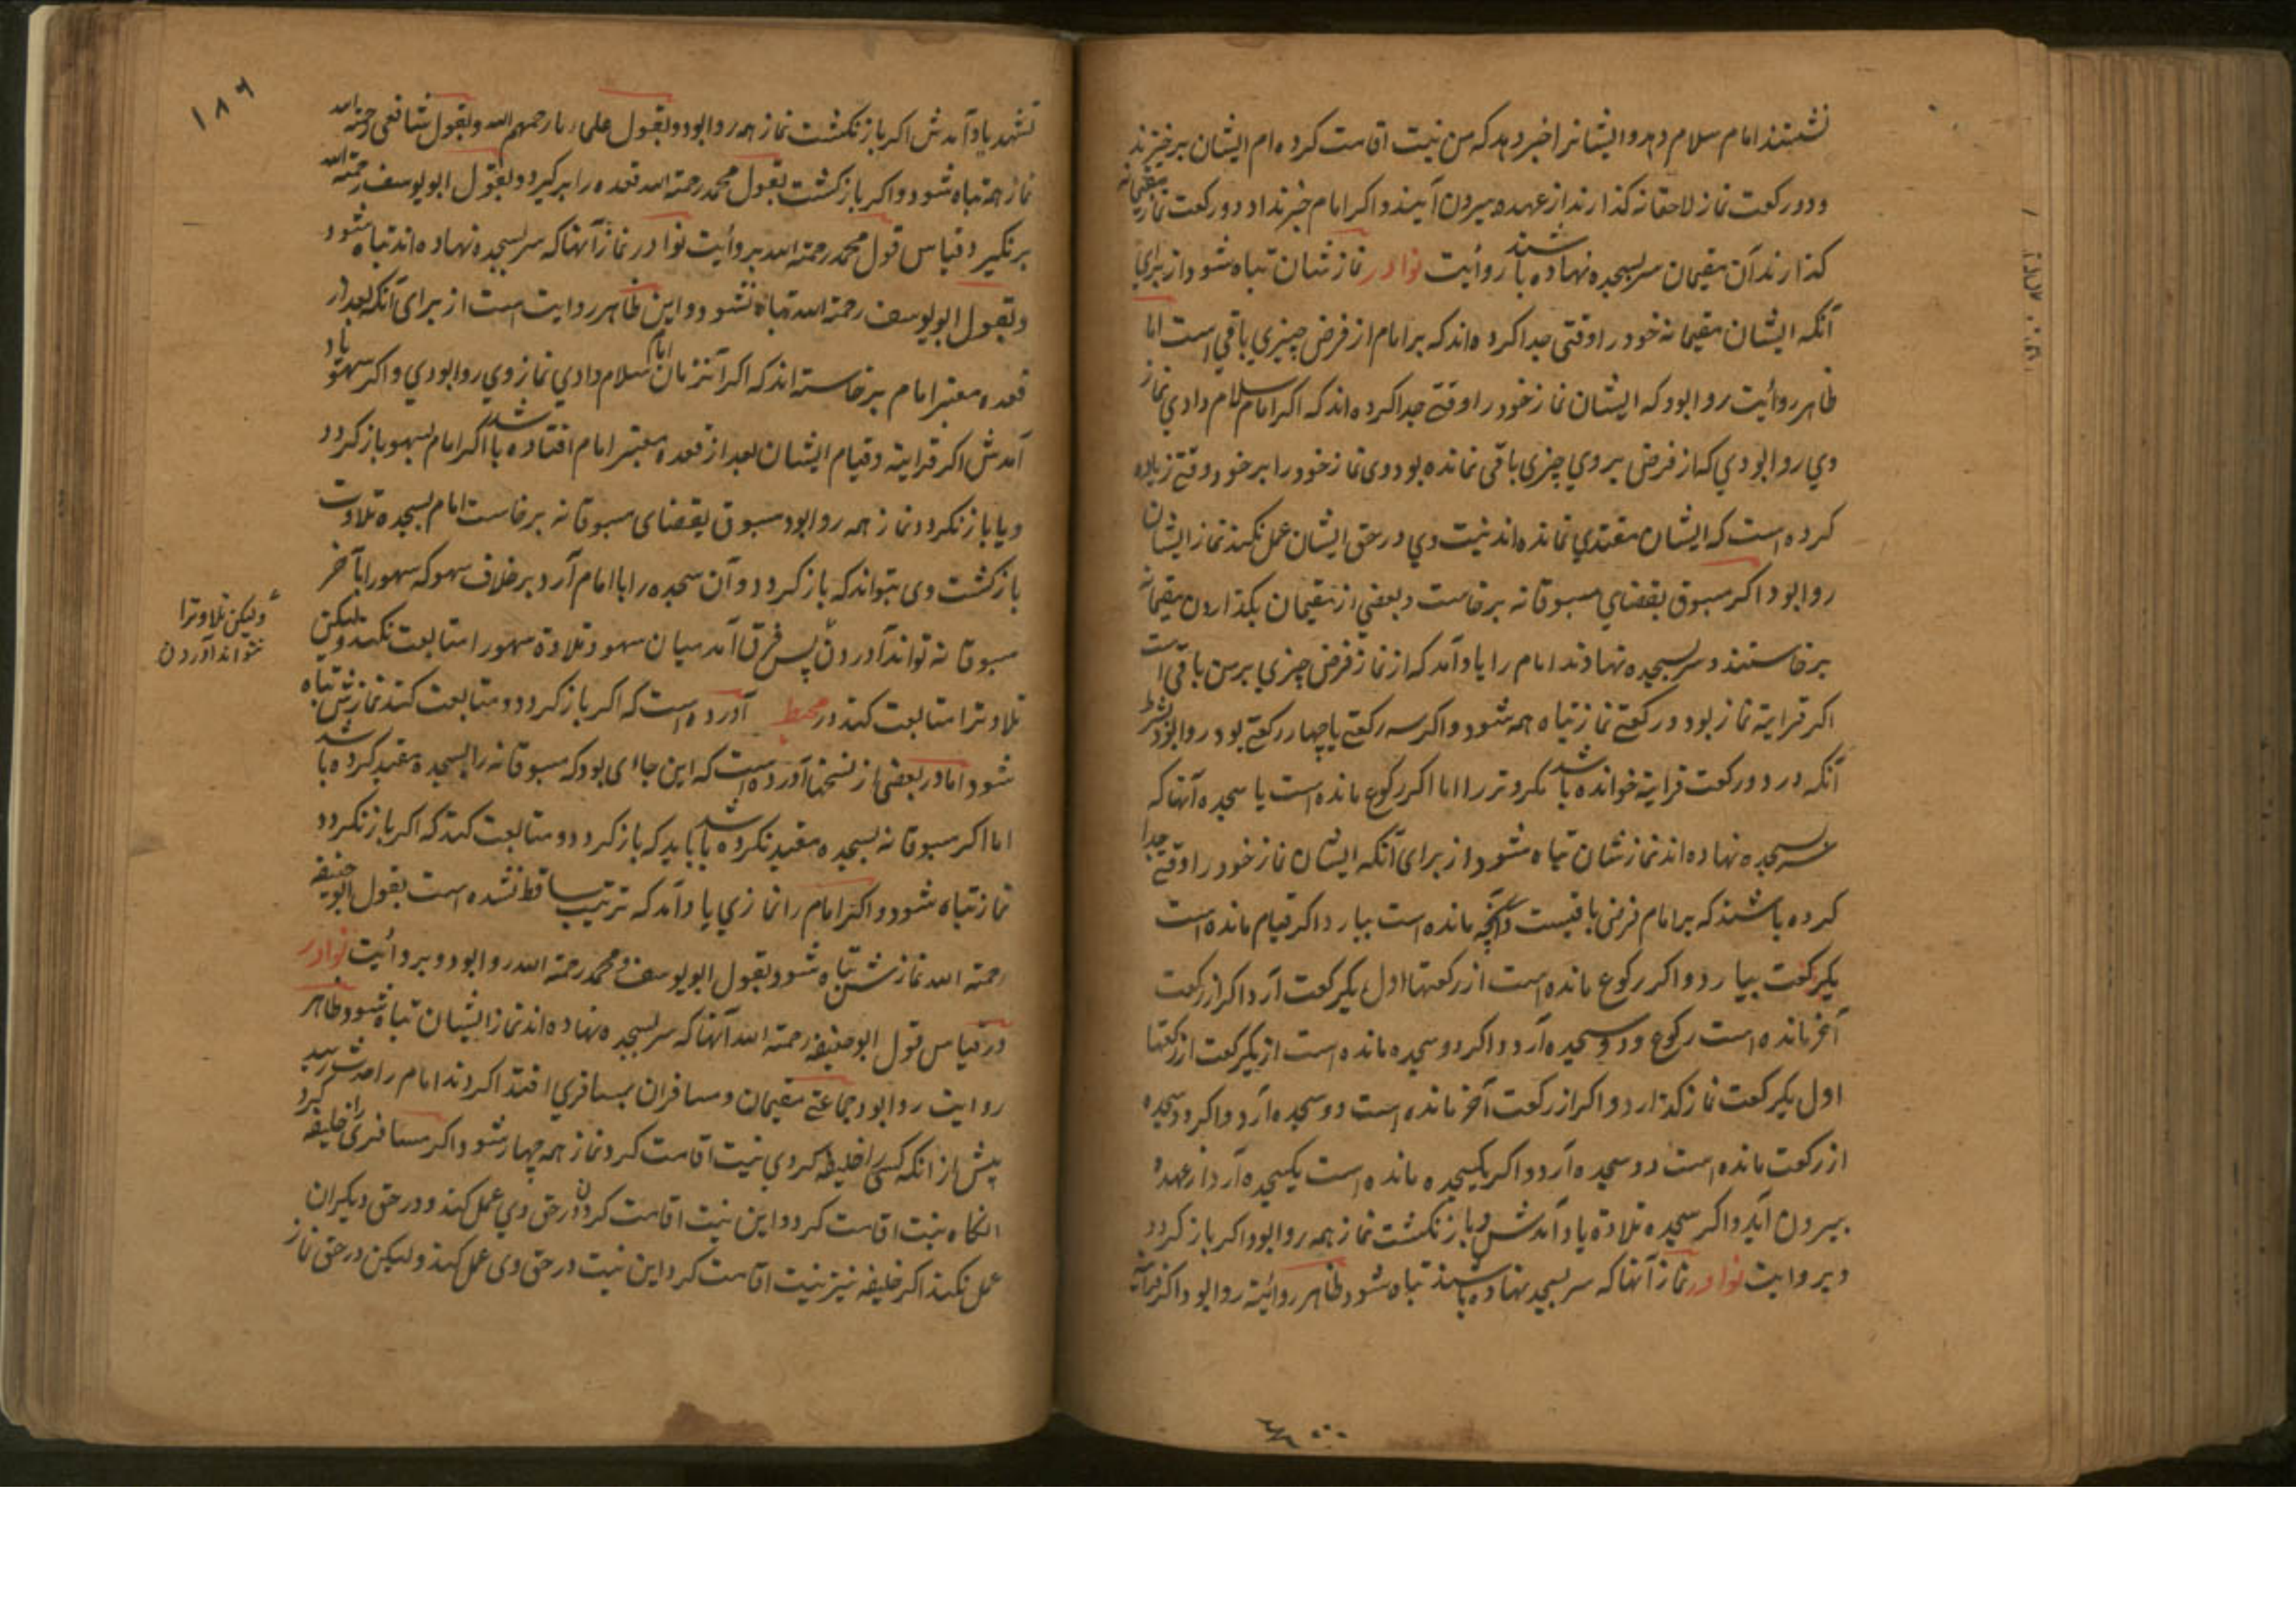 نشستند امام سلام دهد و ایشانرا خبر دهد که من نیت اقامت کرده ام ایشان برخیزند
و دو رکعت نماز لاحقانه کذارند از عهده بیرون آیند و اکر امام خبر نداد دو رکعت نماز مقیمانه
کذارند آن مقیمان سر بسجده نهاده باشند روائیت نوادر نماز شان تباه شود از برای
آنکه ایشان مقیمانه خود را وقتی جدا کرده اند که بر امام از فرض چیزی باقی است اما
ظاهر روائیت روا بود که ایشان نماز خود را وقتی جدا کرده اند که اکر امام سلام دادی نماز
وی روا بودی که از فرض بر وی چیزی باقی نمانده بود وی نماز خود را بر خود وقتی زیاده
کرده است که ایشان مقتدی نمانده اند نیت وی در حق ایشان عمل نکند نماز ایشان
روا بود اکر مسبوق بقضای مسبوقانه برخاست و بعضی از مقیمان بکذاردن مقیمانه
برخاستند و سر بسجده نهادند امام را یاد آمد که از نماز فرض چیزی بر من باقی است
اکر قرایة نماز بود دو رکعتی نماز تباه همه شود و اکر سه رکعتی یا چهار رکعتی بود روا بود بشرط
آنکه در دو رکعت قرایة خوانده باشد مکر وتر را اما اکر رکوع مانده است یا سجده آنها که
سر بسجده نهاده اند نماز شان تباه شود از برای آنکه ایشان نماز خود را وقتی جدا
کرده باشند که بر امام فرض باقیست و آنچه مانده است بیارد اکر قیام مانده است
یکرکعت بیارد و اکر رکوع مانده است از رکعتها اول یکرکعت آرد و اکر از رکعت
آخر مانده است رکوع و دو سجده آرد و اکر دو سجده مانده است از یکرکعت از رکعتها
اول یکرکعت نماز کذارد و اکر از رکعت آخر مانده است دو سجده آرد و اکر دو سجده
از رکعت مانده است دو سجده آرد و اکر یکسجده مانده است یکسجده آرد از عهده
بیرون آید و اکر سجده تلاوة یاد آمدش و باز نکشت نماز همه روا بود و اکر باز کردد
و بروایت نوادر نماز آنها که سر بسجده نهاده باشند تباه شود و ظاهر روائیة روا بود و اکر قرأة
۱۸۶
تشهد یاد آمدش اکر باز نکشت نماز همه روا بود و بقول علماء ما رحمهم الله و بقول شافعی رحمة الله
نماز همه تباه شود و اکر باز کشت بقول محمد رحمة الله قعده را بر کیرد و بقول ابو یوسف رحمة الله
بر نکیرد و قیاس قول محمد رحمة الله بروأیت نوادر نماز آنها که سر بسجده نهاده اند تباه شود
و بقول ابو یوسف رحمة الله تباه نشود و این ظاهر روایت است از برای آنکه بعد از
قعده معتبر امام برخاسته اند که اکر آنزمان امام سلام دادی نماز وی روا بودی و اکر سهو یاد
آمدش اکر قرایة و قیام ایشان بعد از قعده معتبر امام افتاده باشد اکر امام بسهو باز کردد
و یا باز نکردد نماز همه روا بود مسبوق بقضای مسبوقانه برخاست امام بسجده تلاوت
باز کشت وی بتواند که باز کردد و آن سجده را با امام آرد برخلاف سهو که سهو را بآخر
مسبوقانه تواند آوردن پس فرق آمد میان سهو و تلاوة سهو را متابعت نکند ولیکن
تلاوترا متابعت کند در محیط آورده است که اکر باز کردد و متابعت کند نمازش تباه
شود اما در بعضی از نسخها آورده است که این جاای بود که مسبوقانه را بسجده مقید کرده باشد
اما اکر مسبوقانه بسجده مقید نکرده باشد باید که باز کردد و متابعت کند که اکر باز نکردد
نماز تباه شود و اکر امام را نمازی یاد آمد که ترتیب ساقط نشده است بقول ابو حنیفه
رحمة الله نمازش تباه شود و بقول ابو یوسف و محمد رحمة الله روا بود و بروائیت نوادر
در قیاس قول ابو حنیفه رحمة الله آنها که سر بسجده نهاده اند نماز ایشان تباه شود و ظاهر
روایت روا بود جماعتی مقیمان و مسافران بمسافری اقتدا کردند امام را حدث رسید
پیش از آنکه کسی را خلیفه کردی نیت اقامت کرد نماز همه چهار شود و اکر مسافری را خلیفه کرد
آنکاه نیت اقامت کرد و این نیت اقامت کردن در حق وی عمل کند و در حق دیکران
عمل نکند اکر خلیفه نیز نیت اقامت کرد این نیت در حق وی عمل کند ولیکن در حق نماز
ولیکن تلاوترا
نتواند آوردن